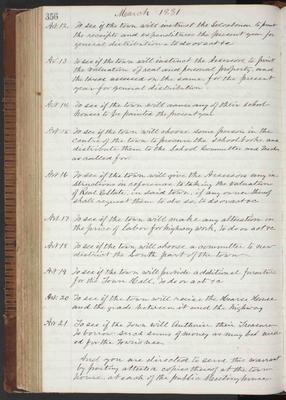 356
March 1881
Art. 12. To see if the town will instruct the Selectmen to print
the receipts and expenditures the present year for
general distribution & to do or act &c
Art 13 To see if the town will instruct the Assessors to print
the Valuation of real and personal property, and
the taxes assessed on the same for the present
year for general distribution
Art. 14. To see if the town will cause any of their school
houses to be painted the present year
Art. 15 To see if the town will choose some person in the
centre of the town to procure the school books and
distribute them to the School Committee and
as called for
Art 16 To see if the town will give the Assessors any in-
structions in reference to taking the Valuation
of Real Estate, in said town, if any owner thereof
shall request them to do so, to do or act &c
Art. 17 To see if the town will make any alteration in
the price of labor for highway work, to do or act &c
Art 18 To see if the town will choose a committee to
district the South part of the town
Art 19 To see if the town will provide additional furniture
for the Town Hall, to do or act &c
Art. 20 To see if the town will raise the Hearse House
and the grade between it and the highway
Art 21 To see if the Town will Authorize their Treasurer
to borrow such sums of money as may be need-
ed for the Town's use
And you are directed to serve this warrant
by posting attested copies thereof at the town
house, at each of the public Meeting houses